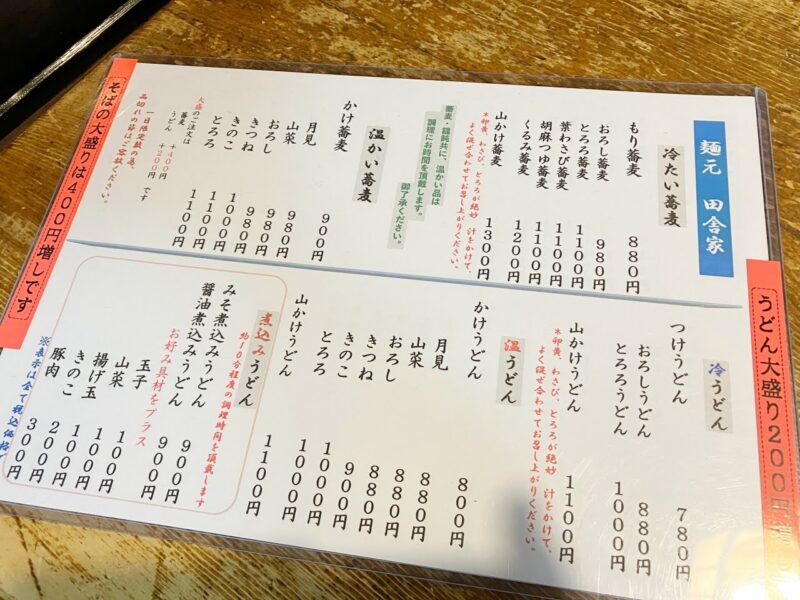 うどん大盛り200円増
麺元 田舎家
冷たい蕎麦
もり蕎麦 880円
おろし蕎麦 980円
とろろ蕎麦 1100円
葉わさび蕎麦 1100円
胡麻つゆ蕎麦 1100円
くるみ蕎麦 1200円
山かけ蕎麦 1300円
*卵黄、わさび、とろろが絶妙 汁をかけて、
よく混ぜ合わせてお召し上がりください。
蕎麦・饂飩共に、温かい品は
調理にお時間を頂戴します。
御了承ください。
温かい蕎麦
かけ蕎麦 900円
月見 980円
山菜 980円
おろし 980円
きつね 1000円
きのこ 1100円
とろろ 1100円
大盛のご注文は
蕎麦 +400円
うどん +200円 です
一日限定数の為、
品切れの節はご容赦ください。
そばの大盛りは400円増しです
冷うどん
つけうどん 780円
おろしうどん 880円
とろろうどん 1000円
山かけうどん 1100円
*卵黄、わさび、とろろが絶妙 汁をかけて、
よく混ぜ合わせてお召し上がりください。
温うどん
かけうどん 800円
月見 880円
山菜 880円
おろし 880円
きつね 900円
きのこ 1000円
とろろ 1000円
山かけうどん 1100円
煮込みうどん
約10分程度の調理時間を頂戴します
みそ煮込みうどん 900円
醤油煮込みうどん 900円
お好み具材をプラス
玉子 100円
山菜 100円
揚げ玉 100円
きのこ 200円
豚肉 300円
※表示は全て税込価格